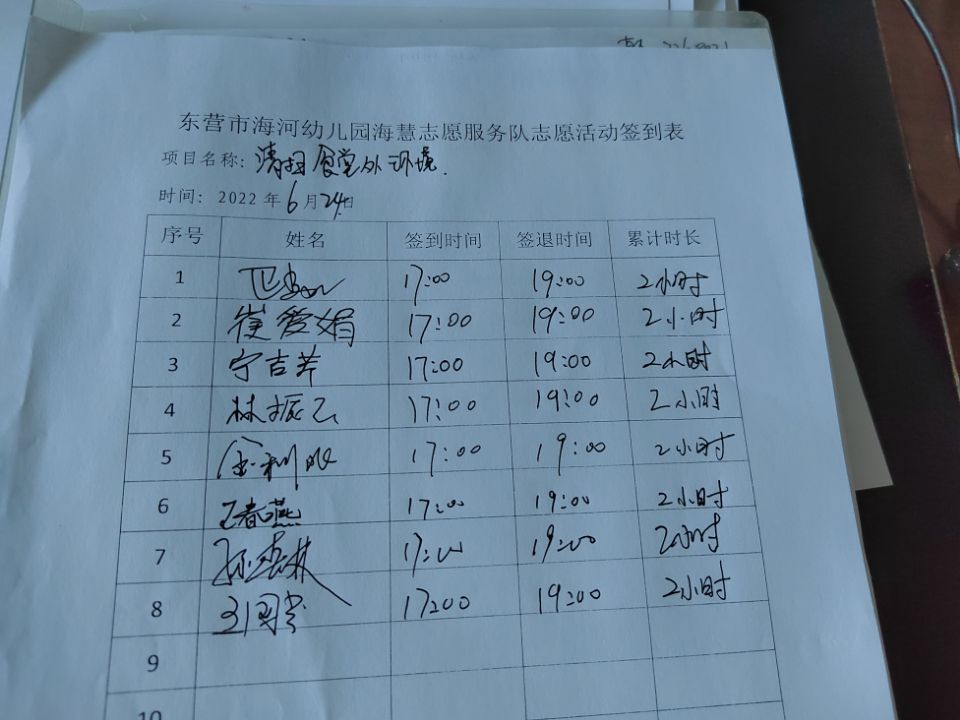 东营市海河幼儿园海慧志愿服务队志愿活动签到表
项目名称：清扫食堂外环境.
时间：2022年6月24日
序号 姓名 签到时间 签退时间 累计时长
1 17:00 19:00 2小时
2 崔爱娟 17:00 19:00 2小时
3 宁吉芹 17:00 19:00 2小时
4 林振 17:00 19:00 2小时
5 17:00 19:00 2小时
6 王春燕 17:00 19:00 2小时
7 17:00 19:00 2小时
8 17:00 19:00 2小时
9
10